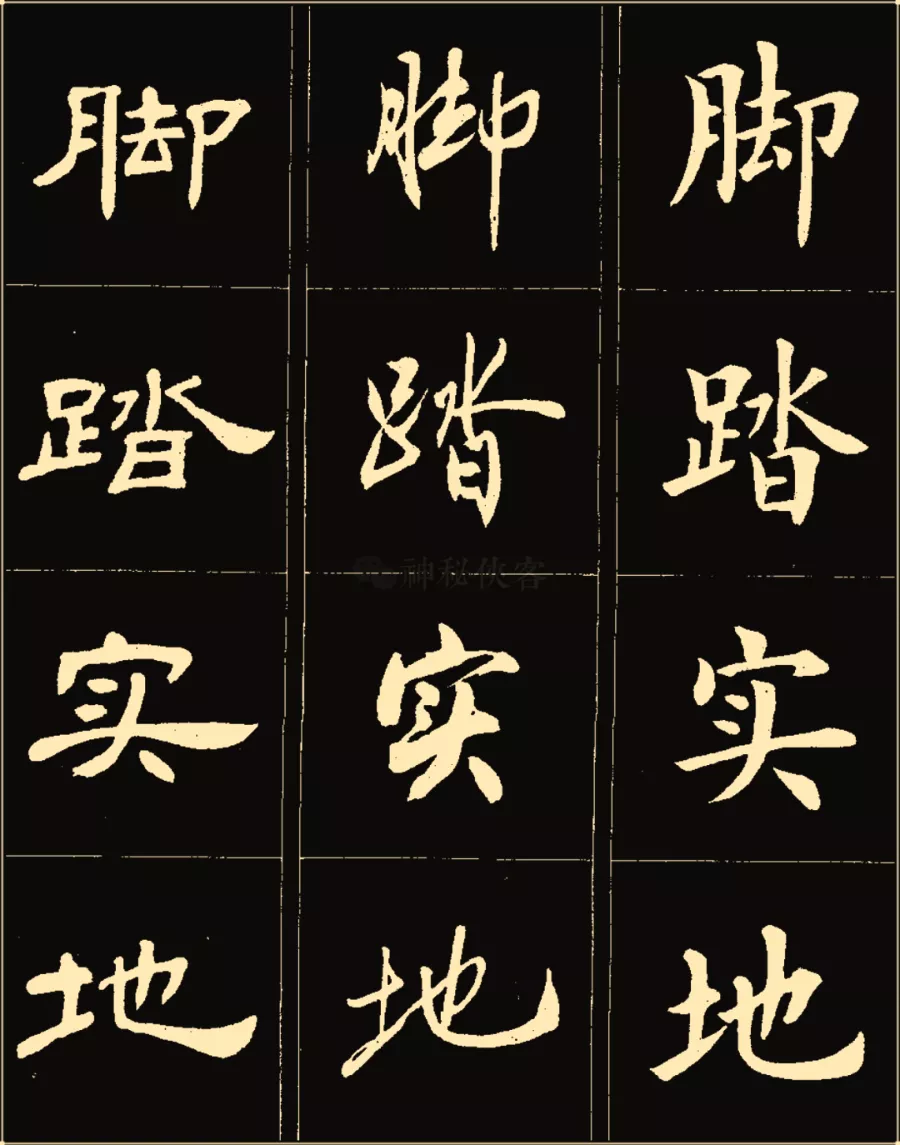 脚踏实地
脚踏实地
脚踏实地
神秘侠客